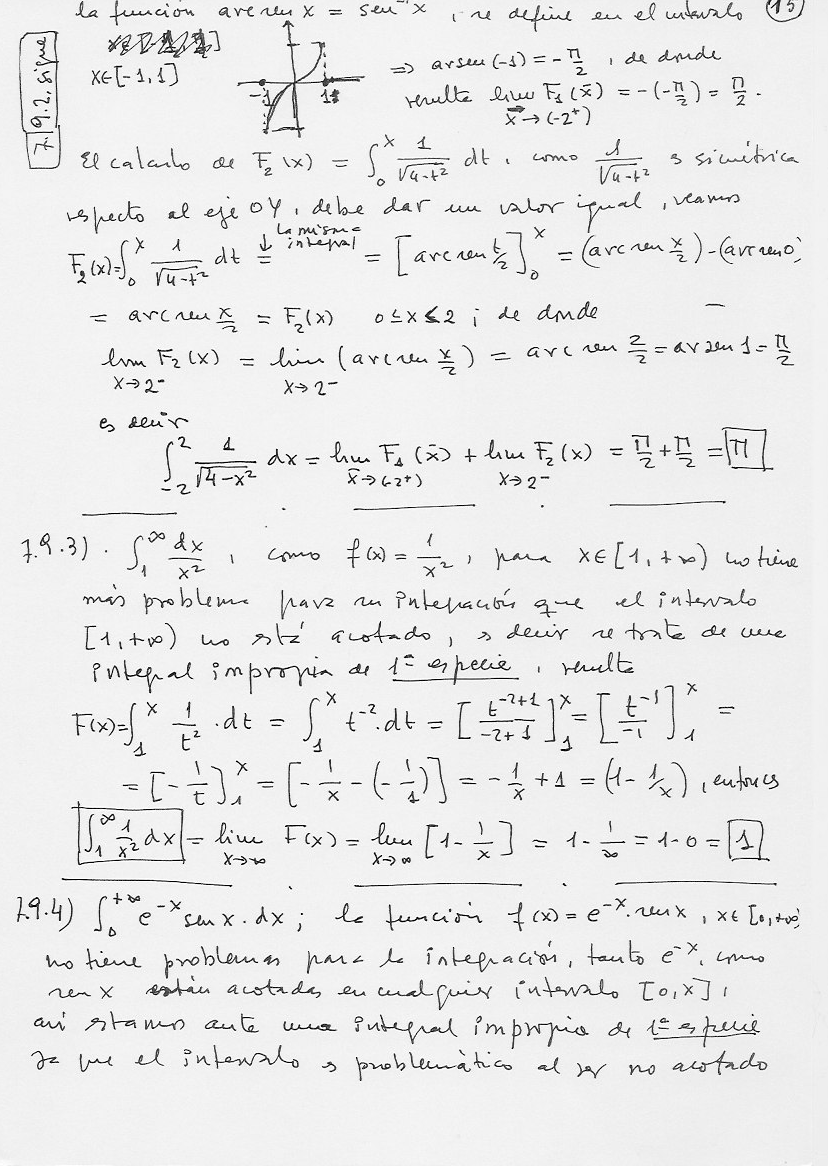 la función arc sen x = sen⁻¹ x , se define en el intervalo (15)
7.9.2. sigue
x∈[-1,1]
-1 1
⇒ arsen(-1) = -π/2 , de donde
resulta lim F₁(x̄) = -(-π/2) = π/2 .
x̄→(-2⁺)
El calculo de F₂(x) = ∫₀ˣ 1/√(4-t²) dt , como 1/√(4-t²) es simétrica
respecto al eje OY, debe dar un valor igual, veamos
F₂(x)=∫₀ˣ 1/√(4-t²) dt = ↓ la misma integral = [arc sen t/2]₀ˣ = (arc sen x/2) - (arc sen 0)
= arc sen x/2 = F₂(x) 0≤x≤2 ; de donde
lim F₂(x) = lim (arc sen x/2) = arc sen 2/2 = ar sen 1 = π/2
x→2⁻ x→2⁻
es decir
∫₋₂² 1/√(4-x²) dx = lim F₁(x̄) + lim F₂(x) = π/2 + π/2 = π
x̄→(-2⁺) x→2⁻
7.9.3) . ∫₁^∞ dx/x² , como f(x) = 1/x² , para x∈[1,+∞) no tiene
más problema para su integración que el intervalo
[1,+∞) no está acotado, es decir se trata de una
integral impropia de 1ª especie , resulta
F(x)=∫₁ˣ 1/t² · dt = ∫₁ˣ t⁻² · dt = [t⁻²⁺¹/-2+1]₁ˣ = [t⁻¹/-1]₁ˣ =
= [-1/t]₁ˣ = [-1/x - (-1/1)] = -1/x + 1 = (1 - 1/x) , entonces
∫₁^∞ 1/x² dx = lim F(x) = lim [1 - 1/x] = 1 - 1/∞ = 1 - 0 = 1
x→∞ x→∞
7.9.4) ∫₀^+∞ e⁻ˣ sen x · dx ; la función f(x) = e⁻ˣ · sen x , x∈[0,+∞)
no tiene problemas para la integración, tanto e⁻ˣ, como
sen x están acotadas en cualquier intervalo [0,x] ,
así estamos ante una integral impropia de 1ª especie
ya que el intervalo es problemàtico al ser no acotado